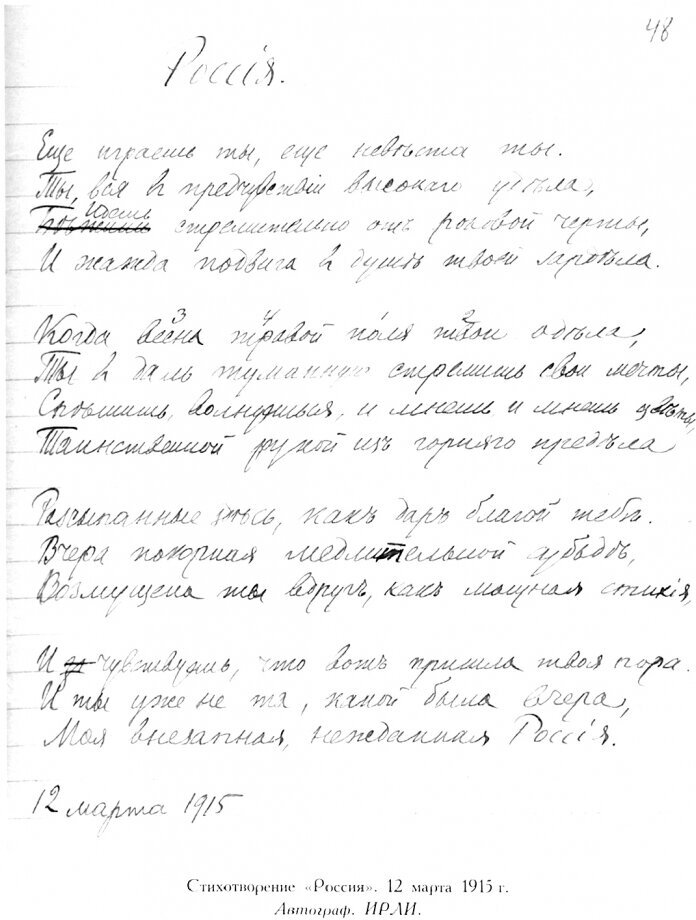 48
Россія.
Еще играешь ты, еще невѣста ты.
Ты, вся въ предчувствіи высокаго удѣла,
Идешь стремительно отъ роковой черты,
И жажда подвига въ душѣ твоей зардѣла.
Когда весна травой поля твои одѣла,
Ты въ даль туманную стремишь свои мечты,
Спѣшишь, волнуешься, и мнешь и мнешь цвѣты,
Таинственной рукой изъ горняго предѣла
Разсыпанные здѣсь, какъ даръ благой тебѣ.
Вчера покорная медлительной судьбѣ,
Возмущена ты вдругъ, какъ мощная стихія,
И чувствуешь, что вотъ пришла твоя пора.
И ты уже не та, какой была вчера,
Моя внезапная, нежданная Россія.
12 марта 1915
Стихотворение «Россия». 12 марта 1915 г.
Автограф. ИРЛИ.